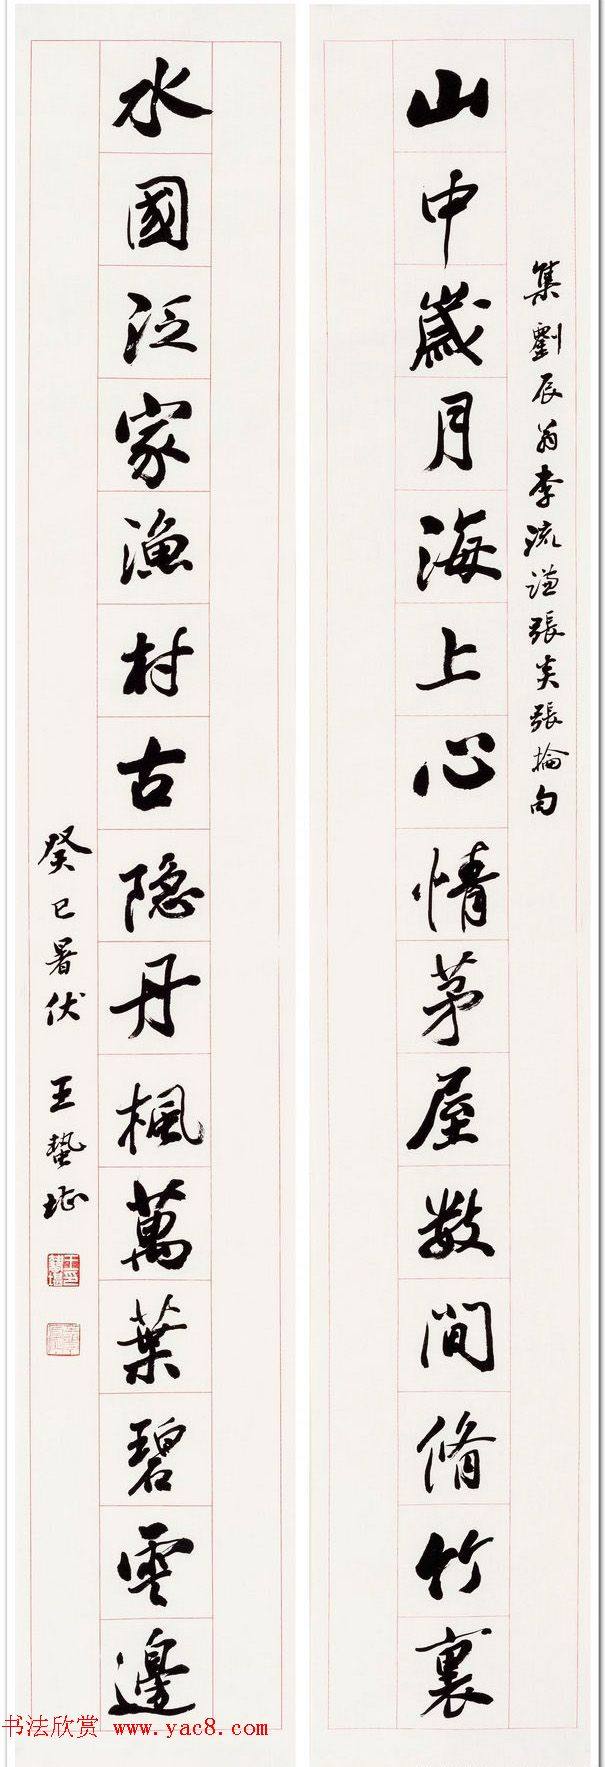 山中歲月海上心情茅屋数間脩竹裏
集劉辰翁李流謙張炎張掄句
水國泛家漁村古隐丹楓萬葉碧雲邊
癸巳暑伏 王蟄堪
书法欣赏 www.yac8.com